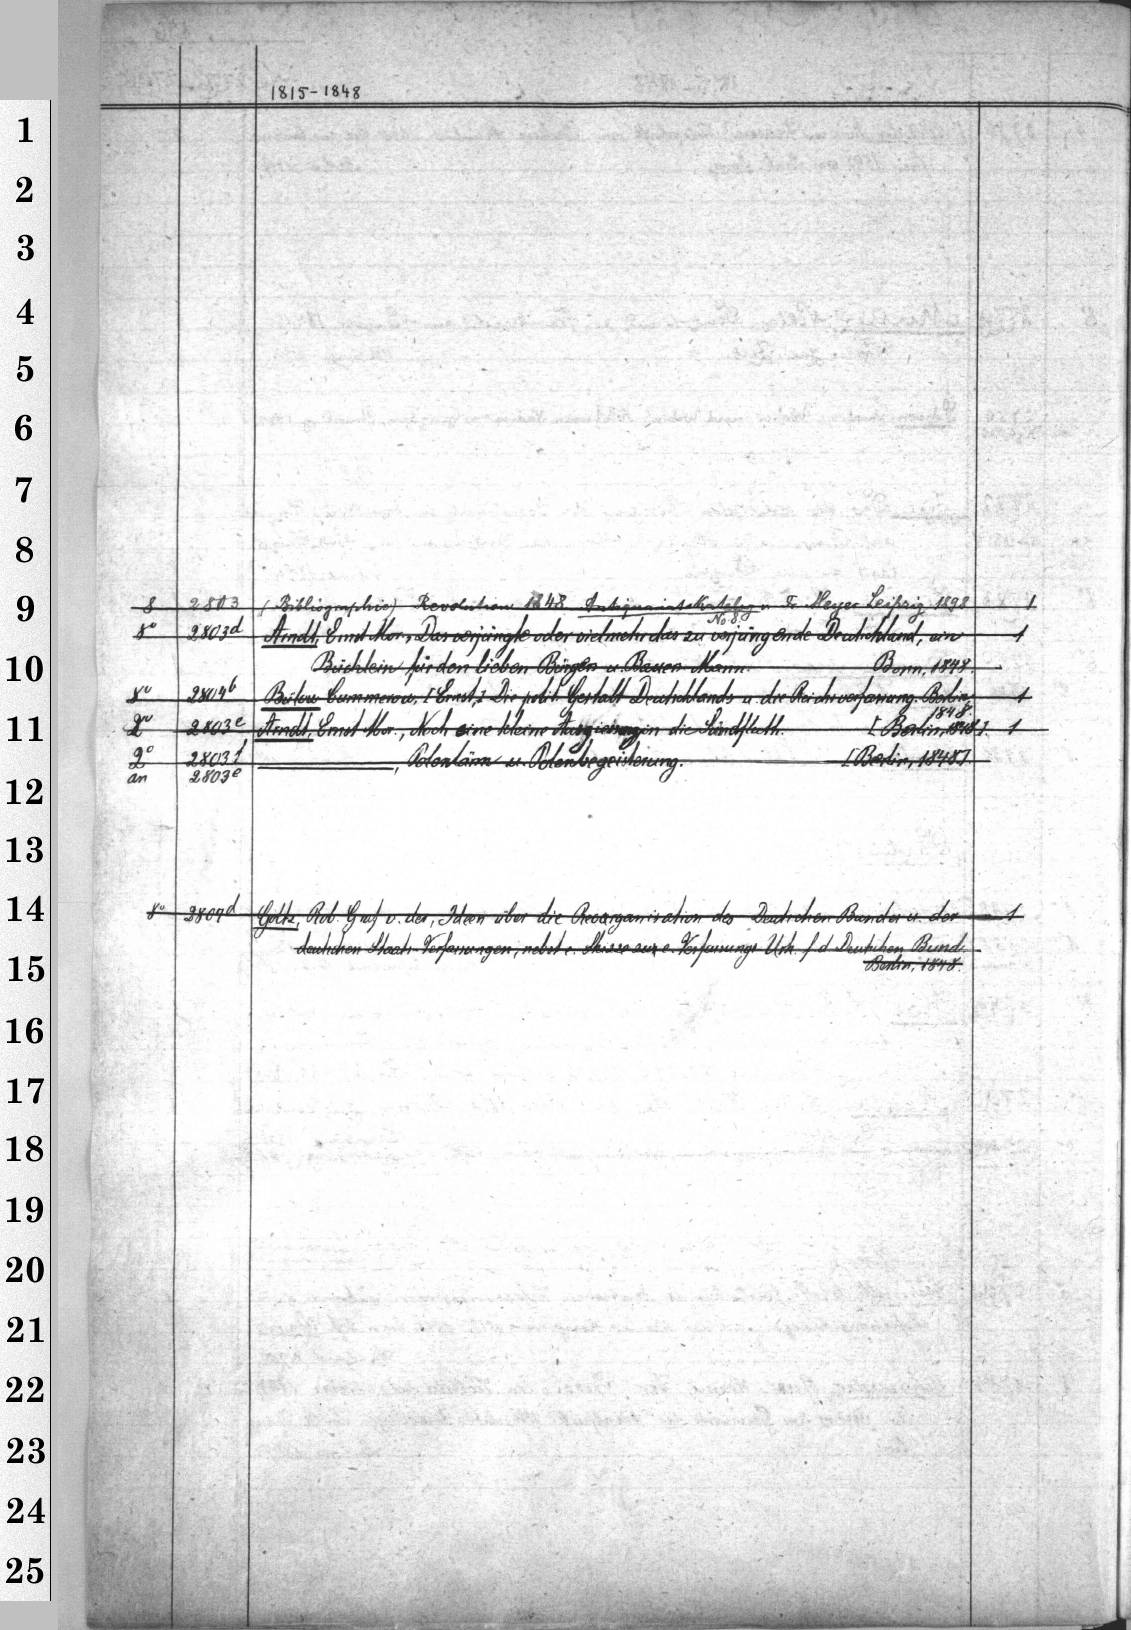 1815-1848
1
2
3
4
5
6
7
8
9
8 2803 (Bibliographie) Revolution 1848 Antiquariatskatalog v Fr Meyer Leipzig 1898 1
No 8.
8° 2803d Arndt, Ernst Mor., Das verjüngte oder vielmehr das zu verjüngende Deutschland, ein 1
10
Büchlein für den lieben Bürger u. Bauers Mann. Bonn, 1848.
8° 2804b Bülow Cummerow, [Ernst,] Die polit. Gestalt Deutschlands u. die Reichsverfassung. Berlin, 1
1848.
11
2° 2803e Arndt, Ernst Mor., Noch eine kleine Ausgiessung in die Sündfluth. [Berlin, 1848]. 1
2° 2803f , Polenlärm u. Polenbegeisterung. [Berlin, 1848].
an 2803e
12
13
14
8° 2804d Goltz, Rob. Graf v. der, Ideen über die Reorganisation des Deutschen Bundes u. der 1
deutschen Staats-Verfassungen, nebst e. Skizze zur e. Verfassungs Urk. f d Deutschen Bund.
15
Berlin, 1848.
16
17
18
19
20
21
22
23
24
25